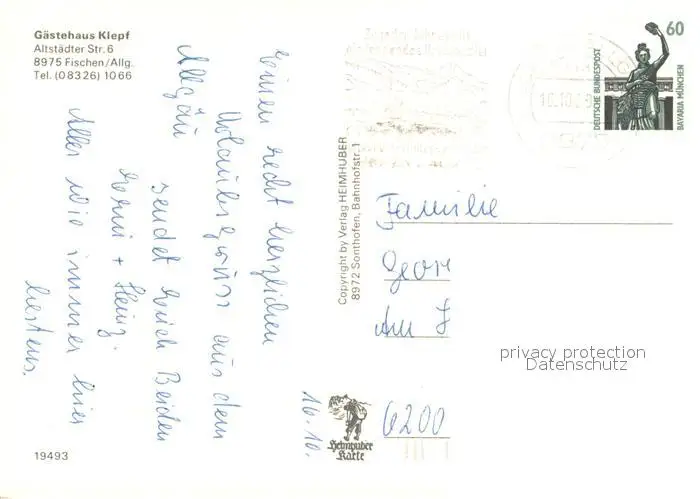 Gästehaus Klepf
Altstädter Str. 6
8975 Fischen/Allg.
Tel. (08326) 1066
Einen recht herzlichen
Urlaubsgruss aus dem
Allgäu
sendet Euch Beiden
+ Heinz.
Alles wie immer hier
bestens.
16.10.
19493
Copyright by Verlag HEIMHUBER
8972 Sonthofen, Bahnhofstr. 1
Heimhuber
Karte
60
DEUTSCHE BUNDESPOST
BAVARIA MÜNCHEN
Familie
Geor
Am
6200
privacy protection
Datenschutz